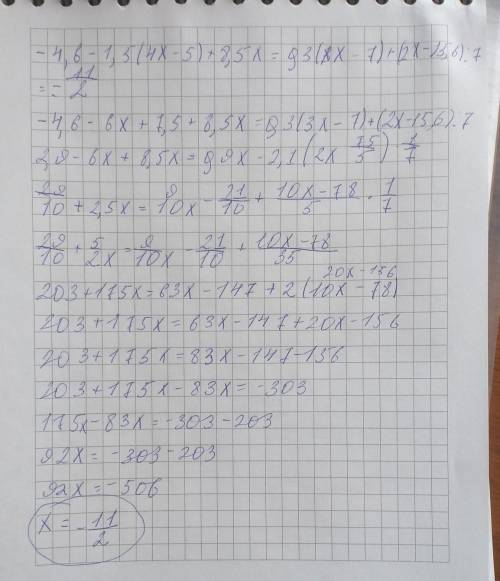 -4,6-1,5(4x-5)+8,5x=0,3(3x-7)+(2x-15,6):7
=-11/2
-4,6-6x+7,5+8,5x=0,3(3x-7)+(2x-15,6).7
2,9-6x+8,5x=0,9x-2,1(2x 75/5) 1/7
29/10+2,5x=9/10x-21/10+10x-78/5·1/7
29/10+5/2x=9/10x-21/10+10x-78/35
20x-156
203+175x=63x-147+2(10x-78)
203+175x=63x-147+20x-156
203+175x=83x-147-156
203+175x-83x=-303
175x-83x=-303-203
92x=-303-203
92x=-506
x=-11/2